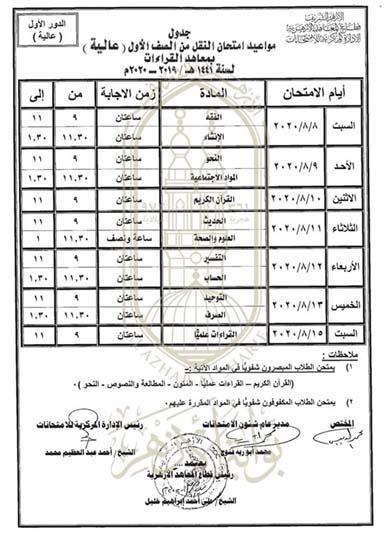 الأزهر الشريف
قطاع المعاهد الأزهرية
الإدارة المركزية للامتحانات
الدور الأول
( عالية )
جدول
مواعيد امتحان النقل من الصف الأول ( عالية )
بمعاهد القراءات
لسنة ١٤٤١ هـ / ٢٠١٩ – ٢٠٢٠م
أيام الامتحان المادة زمن الاجابة من إلى
السبت ٢٠٢٠/٨/٨ الفقه ساعتان ٩ ١١
الإنشاء ساعتان ١١.٣٠ ١.٣٠
الأحد ٢٠٢٠/٨/٩ النحو ساعتان ٩ ١١
المواد الاجتماعية ساعتان ١١.٣٠ ١.٣٠
الاثنين ٢٠٢٠/٨/١٠ القرآن الكريم ساعتان ٩ ١١
الثلاثاء ٢٠٢٠/٨/١١ الحديث ساعتان ٩ ١١
العلوم والصحة ساعة ونصف ١١.٣٠ ١
الأربعاء ٢٠٢٠/٨/١٢ التفسير ساعتان ٩ ١١
الحساب ساعتان ١١.٣٠ ١.٣٠
الخميس ٢٠٢٠/٨/١٣ التوحيد ساعتان ٩ ١١
الصرف ساعتان ١١.٣٠ ١.٣٠
السبت ٢٠٢٠/٨/١٥ القراءات علمياً ساعتان ٩ ١١
ملاحظات :
١) يمتحن الطلاب المبصرون شفويًا في المواد الآتية :-
( القرآن الكريم – القراءات عمليًا – المتون - المطالعة والنصوص - النحو ) .
٢) يمتحن الطلاب المكفوفون شفويًا في المواد المقررة عليهم .
المختص مدير عام شئون الامتحانات رئيس الإدارة المركزية للامتحانات
الشيخ / أحمد عبد العظيم محمد
يعتمد ....
رئيس قطاع المعاهد الأزهرية
الشيخ / على أحمد إبراهيم خليل
بوابة الأزهر